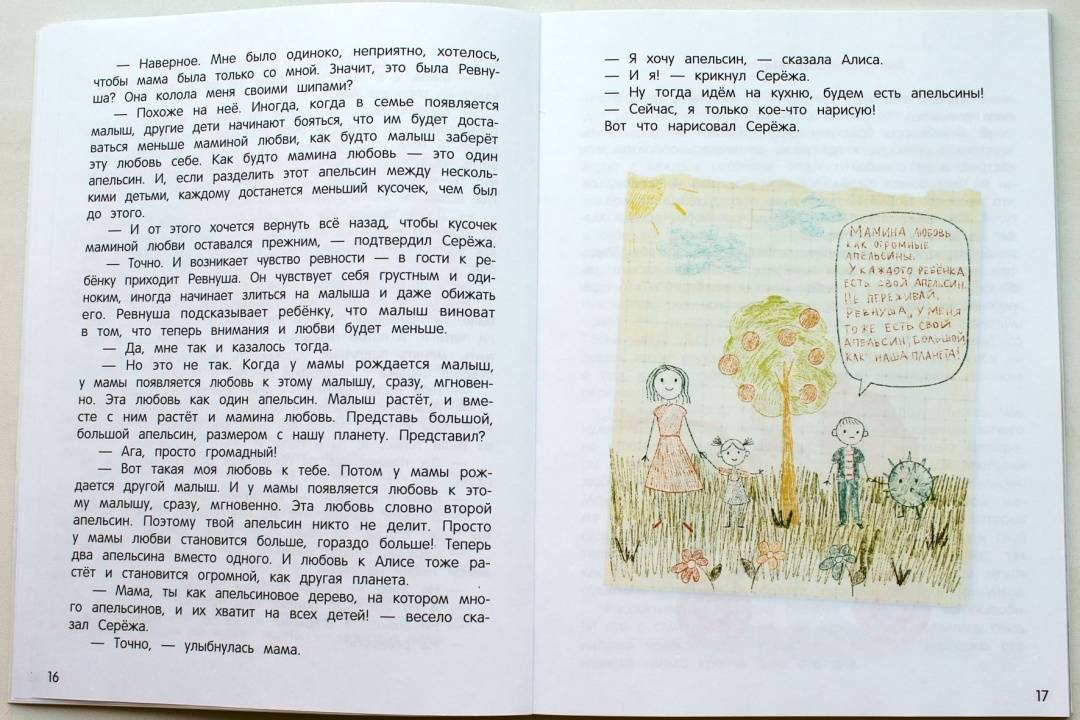 — Наверное. Мне было одиноко, неприятно, хотелось,
чтобы мама была только со мной. Значит, это была Ревну-
ша? Она колола меня своими шипами?
— Похоже на неё. Иногда, когда в семье появляется
малыш, другие дети начинают бояться, что им будет доста-
ваться меньше маминой любви, как будто малыш заберёт
эту любовь себе. Как будто мамина любовь — это один
апельсин. И, если разделить этот апельсин между несколь-
кими детьми, каждому достанется меньший кусочек, чем был
до этого.
— И от этого хочется вернуть всё назад, чтобы кусочек
маминой любви оставался прежним, — подтвердил Серёжа.
— Точно. И возникает чувство ревности — в гости к ре-
бёнку приходит Ревнуша. Он чувствует себя грустным и оди-
ноким, иногда начинает злиться на малыша и даже обижать
его. Ревнуша подсказывает ребёнку, что малыш виноват
в том, что теперь внимания и любви будет меньше.
— Да, мне так и казалось тогда.
— Но это не так. Когда у мамы рождается малыш,
у мамы появляется любовь к этому малышу, сразу, мгновен-
но. Эта любовь как один апельсин. Малыш растёт, и вме-
сте с ним растёт и мамина любовь. Представь большой,
большой апельсин, размером с нашу планету. Представил?
— Ага, просто громадный!
— Вот такая моя любовь к тебе. Потом у мамы рож-
дается другой малыш. И у мамы появляется любовь к это-
му малышу, сразу, мгновенно. Эта любовь словно второй
апельсин. Поэтому твой апельсин никто не делит. Просто
у мамы любви становится больше, гораздо больше! Теперь
два апельсина вместо одного. И любовь к Алисе тоже ра-
стёт и становится огромной, как другая планета.
— Мама, ты как апельсиновое дерево, на котором мно-
го апельсинов, и их хватит на всех детей! — весело ска-
зал Серёжа.
— Точно, — улыбнулась мама.
16
— Я хочу апельсин, — сказала Алиса.
— И я! — крикнул Серёжа.
— Ну тогда идём на кухню, будем есть апельсины!
— Сейчас, я только кое-что нарисую!
Вот что нарисовал Серёжа.
МАМИНА ЛЮБОВЬ
КАК ОГРОМНЫЕ
АПЕЛЬСИНЫ.
У КАЖДОГО РЕБЁНКА
ЕСТЬ СВОЙ АПЕЛЬСИН.
НЕ ПЕРЕЖИВАЙ,
РЕВНУША, У МЕНЯ
ТОЖЕ ЕСТЬ СВОЙ
АПЕЛЬСИН, БОЛЬШОЙ,
КАК НАША ПЛАНЕТА!
17